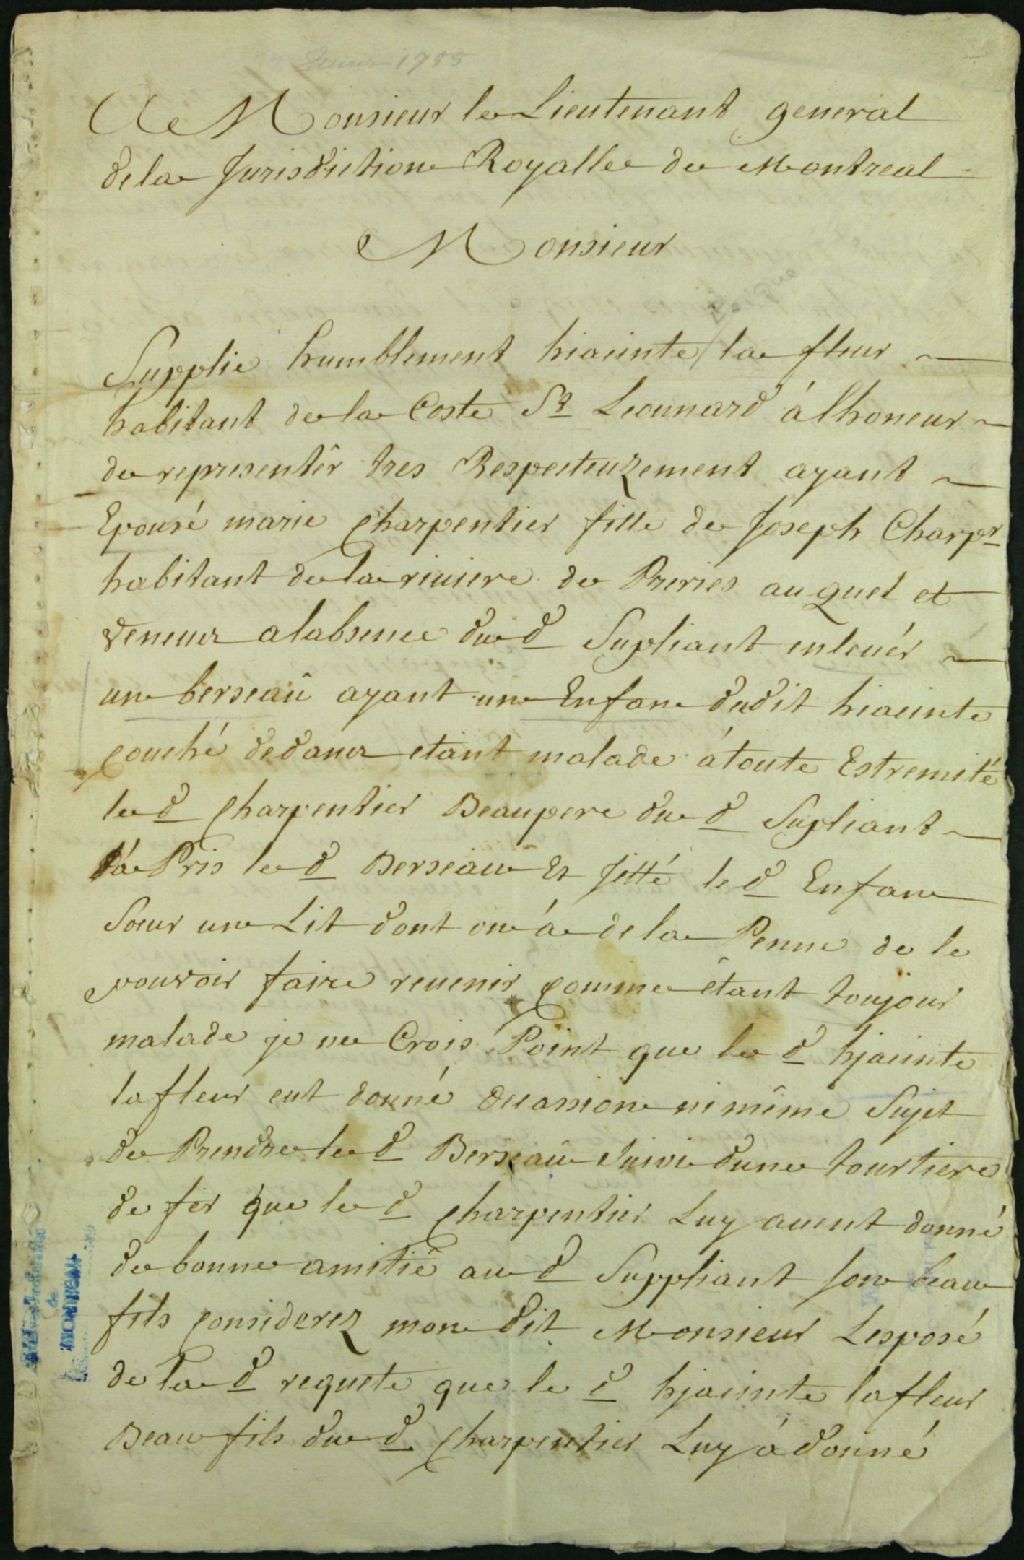 1755
A Monsieur le Lieutenant general
de la Jurisdiction Royalle de Montreal
Monsieur
Supplie humblement hiacinte la fleur
habitant de la Coste St Leonnard á lhoneur
de representér tres Respecteuzement ayant
Epousé marie Charpentier fille de Joseph Charpr
habitant de la riviere de Preries au quel et
veneur alabsence du d Supliant enlevér
un berseaû ayant un Enfan dudit hiacinte
couché dedanr etant malade átoute Estremité
le d Charpentier Beaupere du d Supliant
á Pris le d Berseau Et Jetté le d Enfan
Sœur un Lit dont on á de la Penne de le
pouvoir faire revenir Comme étant toujour
malade je ne Crois Point que le d hjacinte
lafleur eut donné ocassion ni mîme Sujet
de Prendre le d Berseau Suivi dune tourtiere
de fer que le d Charpentier Luy avent donné
de bonne amitié au d Suppliant Son beau
fils Considerez mon dit Monsieur Lesposé
de la d requete que le d hjacinte lafleur
Beau fils du d Charpentier Luy á donné